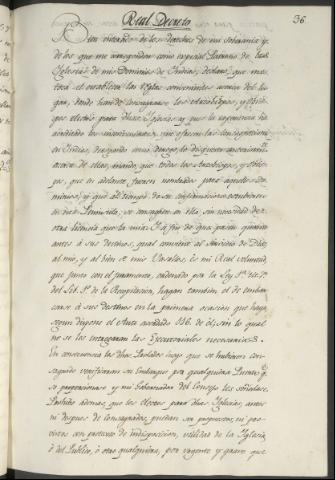 Real Decreto
36
Bien enterado de los derechos de mi soberania y
de los que me corresponden como especial Patrono de las
Iglesias de mis Dominios de Indias, declaro que
toca el establecer las reglas convenientes acerca del lu-
gar, donde han de consagrarse los Arzobispos, y Obis-
pos electos para dhas Iglesias; y que la experiencia ha
acreditado los inconvenientes, que ofrecen las consagraciones
en Indias,
acerca de ellas, mando, que todos los Arzobispos, y Obis-
pos, que en adelante fueren nombrados para aquellos Do-
minios, y que al tiempo de su
en esta Peninsula, se consagren en ella sin necesidad de
otra licencia que la mia. Y a fin de que pasen quanto
antes á sus destinos, qual conviene al servicio de Dios,
al mio, y al bien de mis Vasallos, es mi Real voluntad,
que junto con el Juramento, ordenado por la Ley
del de la Recopilacion, hagan tambien el de embar-
carse á sus destinos en la primera ocasion que haya,
segun dispone el Auto acordado de él, sin lo qual
no se les entregaran las Executoriales necesarias.
En consecuencia los dhos Prelados luego que se hubieren con-
sagrado verificaran su Embarque por qualquiera Puerto q.e
se proporcionare y mi Gobernador del Consejo les señalare.
Prohibo ademas, que los electos para dhas Iglesias, antes
ni despues de Consagrados, puedan ser propuestos, ni pro-
vistos con pretexto de indisposicion, utilidad de la Iglesia,
ó del Publico, ó otro qualquiera, por urgente y grave que